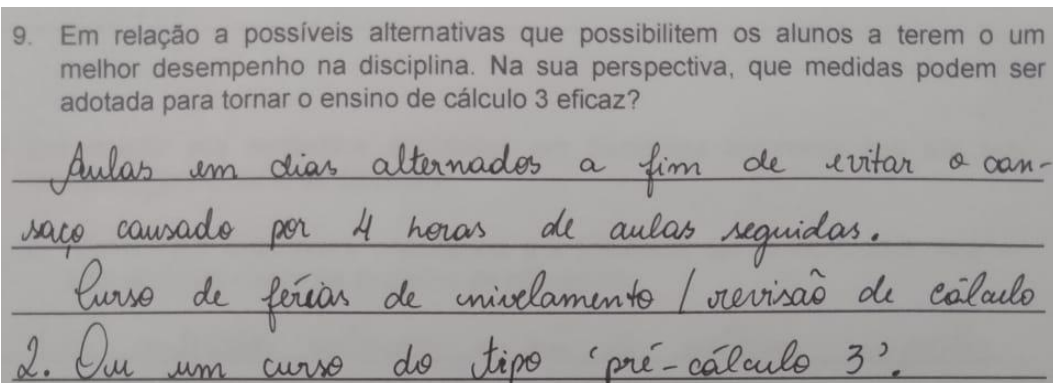 9. Em relação a possíveis alternativas que possibilitem os alunos a terem o um
melhor desempenho na disciplina. Na sua perspectiva, que medidas podem ser
adotada para tornar o ensino de cálculo 3 eficaz?
Aulas em dias alternados a fim de evitar o can-
saço causado por 4 horas de aulas seguidas.
Curso de férias de nivelamento / revisão de cálculo
2. Ou um curso do tipo 'pré-cálculo 3'.